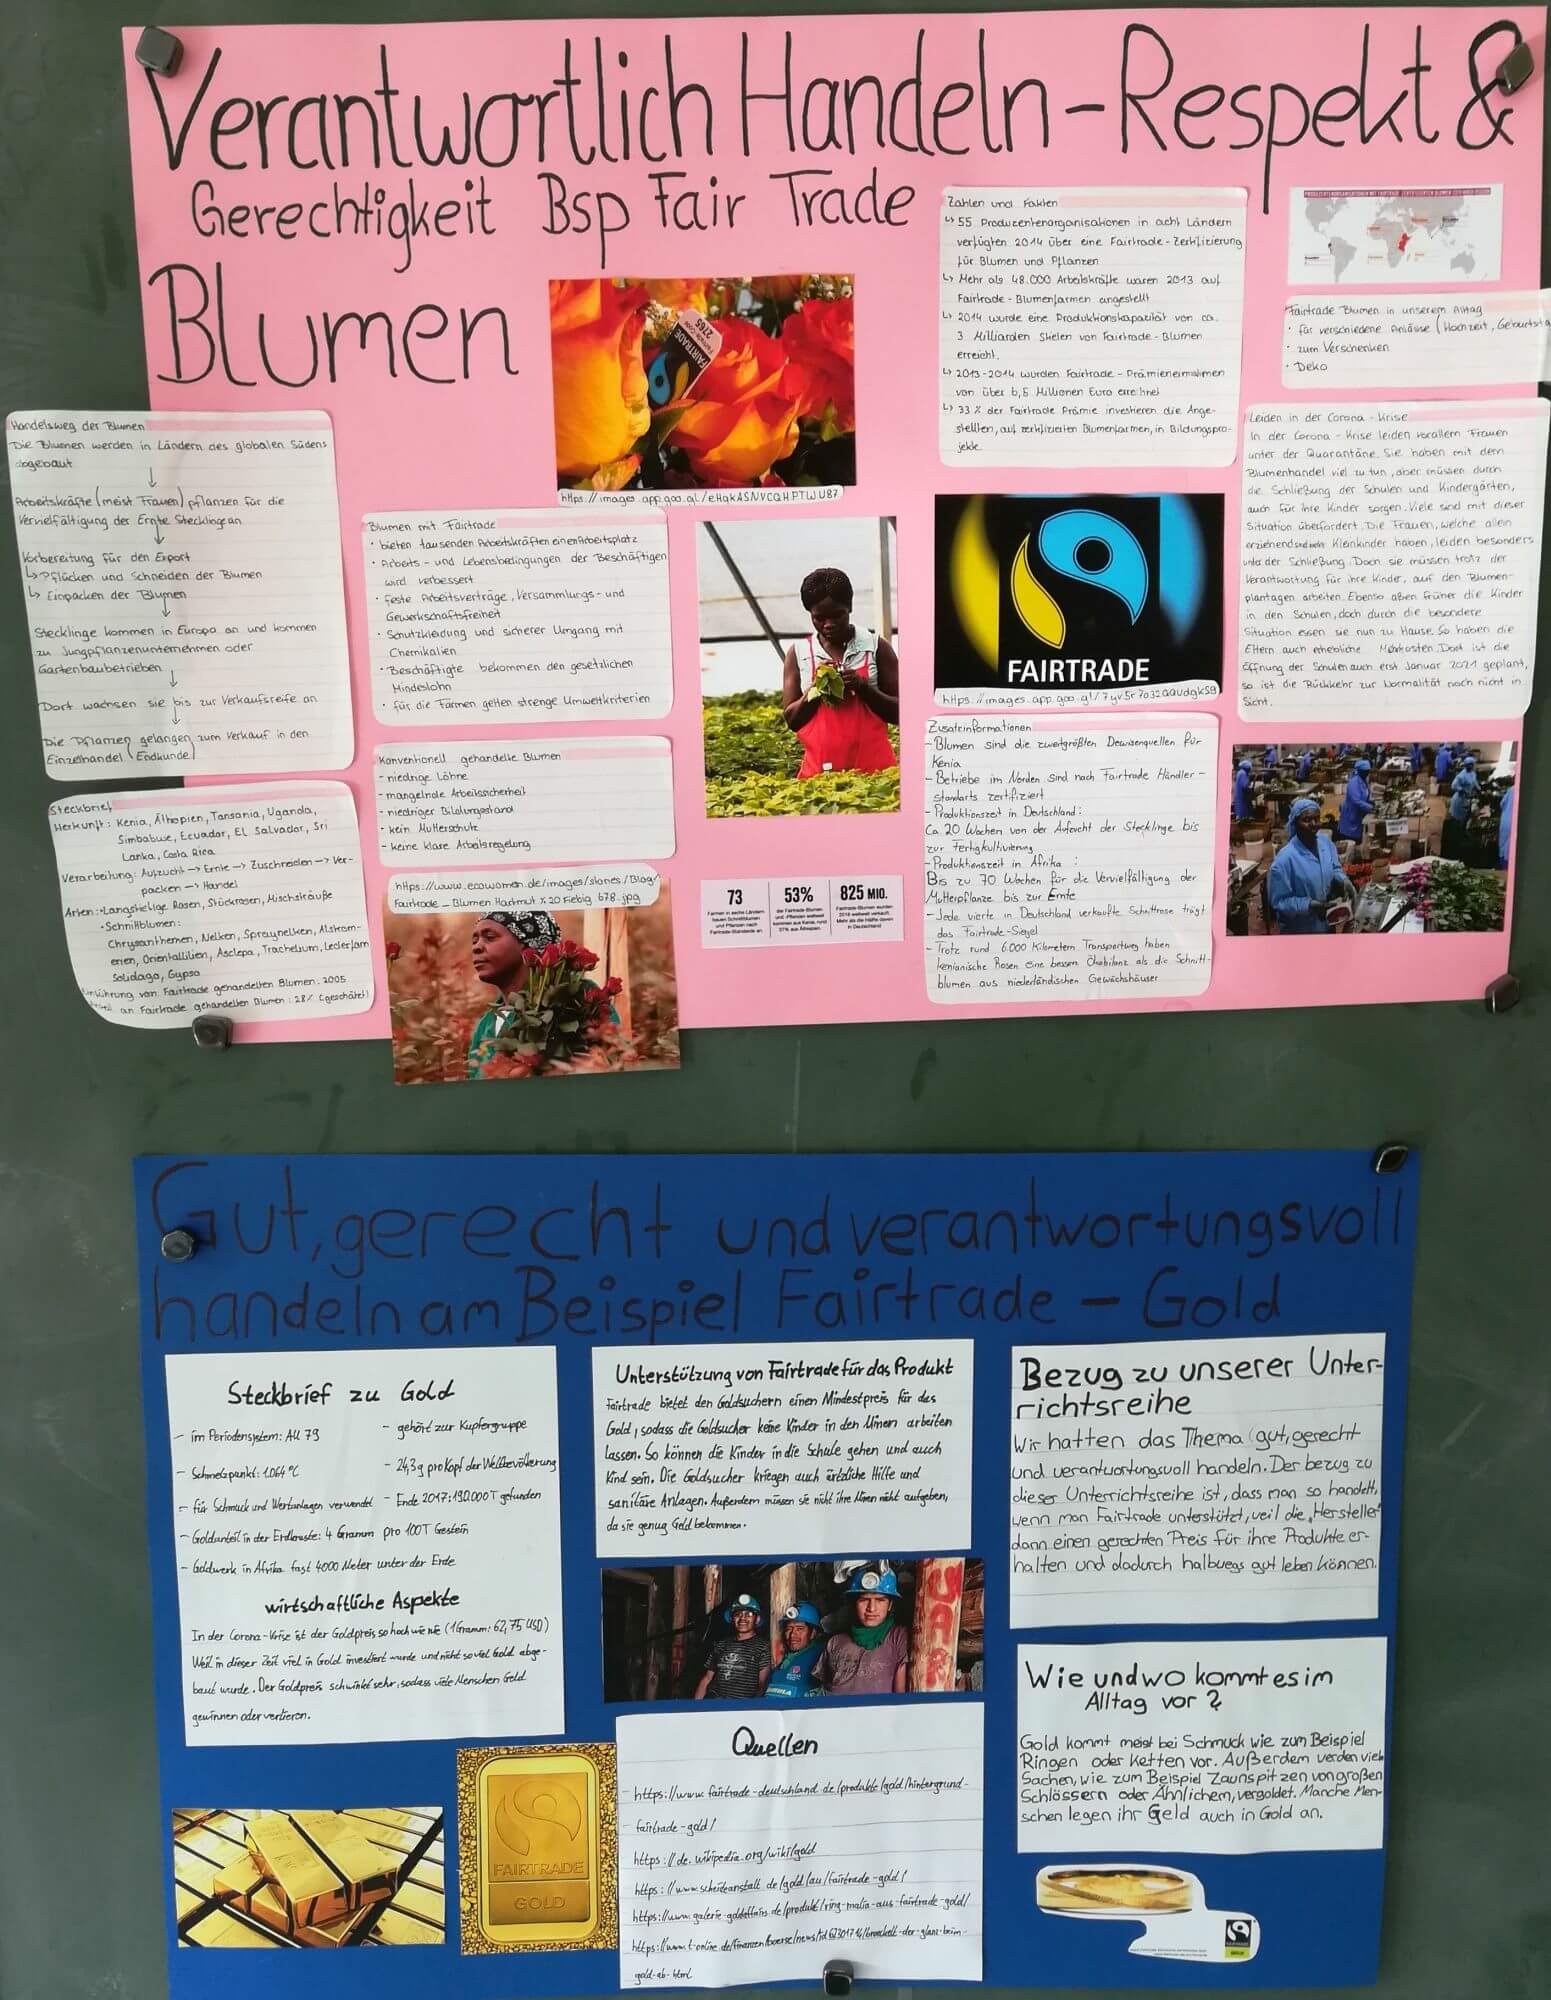 Verantwortlich Handeln - Respekt &
Gerechtigkeit Bsp Fair Trade
Blumen
Handelsweg der Blumen
Die Blumen werden in Ländern des globalen Südens
abgebaut
↓
Arbeitskräfte (meist Frauen) pflanzen für die
Vervielfältigung der Ernte Stecklinge an
↓
Vorbereitung für den Export
↳ Pflücken und Schneiden der Blumen
↳ Einpacken der Blumen
↓
Stecklinge kommen in Europa an und kommen
zu Jungpflanzenunternehmen oder
Gartenbaubetrieben
↓
Dort wachsen sie bis zur Verkaufsreife an
↓
Die Pflanzen gelangen zum Verkauf in den
Einzelhandel (Endkunde)
Steckbrief
Herkunft: Kenia, Äthopien, Tansania, Uganda,
Simbabwe, Ecuador, El Salvador, Sri
Lanka, Costa Rica
Verarbeitung: Aufzucht → Ernte → Zuschneiden → Ver-
packen → Handel
Arten: • Langstielige Rosen, Stockrosen, Mischsträuße
• Schnittblumen:
Chrysanthemen, Nelken, Spraynelken, Alstrom-
erien, Orientallilien, Asclepa, Trachelium, Lederfarn
Solidago, Gypso
Einführung von Fairtrade gehandelten Blumen: 2005
an Fairtrade gehandelten Blumen: 28% (geschätzt)
FAIRTRADE
2765
https://images.app.goo.gl/eHqkASNVCQHPTWU87
Blumen mit Fairtrade
• bieten tausenden Arbeitskräften einen Arbeitsplatz
• Arbeits- und Lebensbedingungen der Beschäftigen
wird verbessert
• feste Arbeitsverträge, Versammlungs- und
Gewerkschaftsfreiheit
• Schutzkleidung und sicherer Umgang mit
Chemikalien
• Beschäftigte bekommen den gesetzlichen
Mindeslohn
• für die Farmen gelten strenge Umweltkriterien
Konventionell gehandelte Blumen
- niedrige Löhne
- mangelnde Arbeitssicherheit
- niedriger Bildungsstand
- kein Mutterschutz
- keine klare Arbeitsregelung
https://www.ecowomen.de/images/stories/Blog/
Fairtrade_Blumen Hartmut%20Fiebig 678.jpg
73
Farmen in sechs Ländern
bauen Schnittblumen
und Pflanzen nach
Fairtrade-Standards an
53%
der Fairtrade-Blumen
und -Pflanzen weltweit
kommen aus Kenia, rund
37% aus Äthiopien
825 MIO.
Fairtrade-Blumen wurden
2016 weltweit verkauft.
Mehr als die Hälfte davon
in Deutschland
Zahlen und Fakten
↳ 55 Produzentenorganisationen in acht Ländern
verfügten 2014 über eine Fairtrade-Zertifizierung
für Blumen und Pflanzen
↳ Mehr als 48.000 Arbeitskräfte waren 2013 auf
Fairtrade-Blumenfarmen angestellt
↳ 2014 wurde eine Produktionskapazität von ca.
3 Milliarden Stielen von Fairtrade-Blumen
erreicht.
↳ 2013-2014 wurden Fairtrade-Prämieneinnahmen
von über 6,5 Millionen Euro errechnet
↳ 33% der Fairtrade Prämie investieren die Ange-
stellten, auf zertifizierten Blumenfarmen, in Bildungspro-
jekte.
FAIRTRADE
https://images.app.goo.gl/7yV5r7o32QAUdgkS9
Zusatzinformationen
- Blumen sind die zweitgrößten Devisenquellen für
Kenia
- Betriebe im Norden sind nach Fairtrade Händler-
standarts zertifiziert
- Produktionszeit in Deutschland:
Ca 20 Wochen von der Aufzucht der Stecklinge bis
zur Fertigkultivierung
- Produktionszeit in Afrika:
Bis zu 70 Wochen für die Vervielfältigung der
Mutterpflanze bis zur Ernte
- Jede vierte in Deutschland verkaufte Schnittrose trägt
das Fairtrade-Siegel
- Trotz rund 6.000 Kilometern Transportweg haben
kenianische Rosen eine bessere Ökobilanz als die Schnitt-
blumen aus niederländischen Gewächshäuser
Fairtrade Blumen in unserem Alltag
• für verschiedene Anlässe (Hochzeit, Geburtsta
• zum Verschenken
• Deko
Leiden in der Corona-Krise
In der Corona-Krise leiden vorallem Frauen
unter der Quarantäne. Sie haben mit dem
Blumenhandel viel zu tun, aber müssen durch
die Schließung der Schulen und Kindergärten,
auch für ihre Kinder sorgen. Viele sind mit dieser
Situation überfordert. Die Frauen, welche allein
erziehend sind oder Kleinkinder haben, leiden besonders
unter der Schließung. Doch sie müssen trotz der
Verantwortung für ihre Kinder, auf den Blumen-
plantagen arbeiten. Ebenso aßen früher die Kinder
in den Schulen, doch durch die besondere
Situation essen sie nun zu Hause. So haben die
Eltern auch erhebliche Mehrkosten. Dort ist die
Öffnung der Schulen auch erst Januar 2021 geplant,
so ist die Rückkehr zur Normalität noch nicht in
Sicht.
Gut, gerecht und verantwortungsvoll
handeln am Beispiel Fairtrade - Gold
Steckbrief zu Gold
- im Periodensystem: AU 79
- Schmelzpunkt: 1.064°C
- für Schmuck und Wertanlagen verwendet
- Goldanteil in der Erdkruste: 4 Gramm pro 100T Gestein
- Goldwerk in Afrika fast 4000 Meter unter der Erde
- gehört zur Kupfergruppe
- 24,3g pro Kopf der Weltbevölkerung
- Ende 2017: 190.000T gefunden
wirtschaftliche Aspekte
In der Corona-Krise ist der Goldpreis so hoch wie nie (1 Gramm: 62,75 USD)
Weil in dieser Zeit viel in Gold investiert wurde und nicht so viel Gold abge-
baut wurde. Der Goldpreis schwankt sehr, sodass viele Menschen Geld
gewinnen oder verlieren.
Unterstützung von Fairtrade für das Produkt
Fairtrade bietet den Goldsuchern einen Mindestpreis für das
Gold, sodass die Goldsucher keine Kinder in den Minen arbeiten
lassen. So können die Kinder in die Schule gehen und auch
Kind sein. Die Goldsucher kriegen auch ärztliche Hilfe und
sanitäre Anlagen. Außerdem müssen sie nicht ihre Minen nicht aufgeben,
da sie genug Geld bekommen.
FAIRTRADE
GOLD
Quellen
- https://www.fairtrade-deutschland.de/produkte/gold/hintergrund-
- fairtrade-gold/
https://de.wikipedia.org/wiki/gold
https://www.scheideanstalt.de/gold/au/fairtrade-gold/
gold-ab-html
Bezug zu unserer Unter-
richtsreihe
Wir hatten das Thema (gut, gerecht
und verantwortungsvoll handeln. Der bezug zu
dieser Unterrichtsreihe ist, dass man so handelt,
wenn man Fairtrade unterstützt, weil die „Hersteller"
dann einen gerechten Preis für ihre Produkte er-
halten und dadurch halbwegs gut leben können.
Wie und wo kommt es im
Alltag vor?
Gold kommt meist bei Schmuck wie zum Beispiel
Ringen oder Ketten vor. Außerdem werden viele
Sachen, wie zum Beispiel Zaunspitzen von großen
Schlössern oder Ähnlichem, vergoldet. Manche Men-
schen legen ihr Geld auch in Gold an.